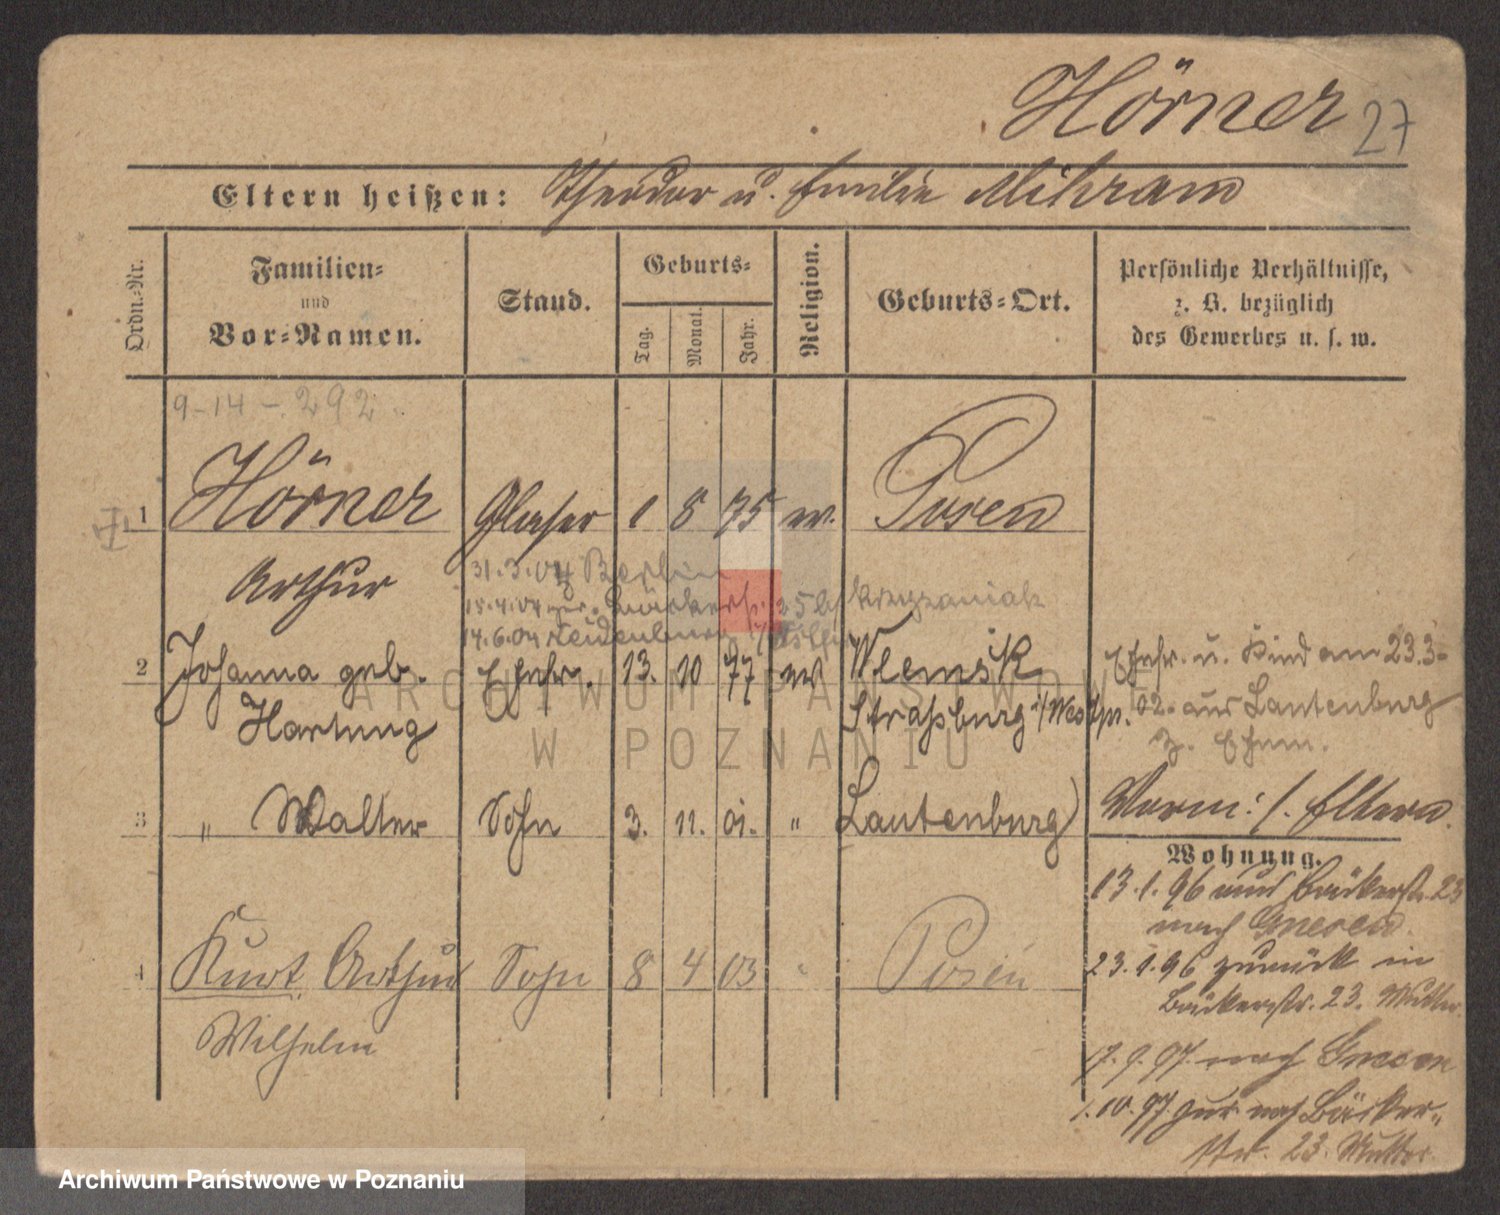 Hörner 27
Eltern heißen: Theodor u. Emilie Mikram
Ordn.-Nr.
Familien-
und
Vor-Namen.
Stand.
Geburts-
Tag.
Monat.
Jahr.
Religion.
Geburts-Ort.
Persönliche Verhältnisse,
z. B. bezüglich
des Gewerbes u. s. w.
9-14-292
1 Hörner Glaser 1 8 75 ev. Posen
Arthur
31.3.04 Berlin
15.4.04 zur. Bäckerstr. 25
14.6.04 Neidenburg
2 Johanna geb. Ehefr. 13. 10 77 ev Klensk
Hartung Straßburg i/Westpr.
Ehefr. u. Kind am 23.3.
02. aus Lautenburg
z. Ehem.
3 " Walter Sohn 3. 11. 01. " Lautenburg
Vorm: s. Eltern.
Wohnung.
13.1.96 aus Bäckerstr. 23
nach Gnesen.
23.1.96 zurück in
Bäckerstr. 23. Mutter.
4 Kurt Arthur Sohn 8 4 03 Posen
Wilhelm
7.9.97. nach Gnesen
1.10.97 zur nach Bäcker-
str. 23. Mutter.
ARCHIWUM PAŃSTWOWE
W POZNANIU
Archiwum Państwowe w Poznaniu